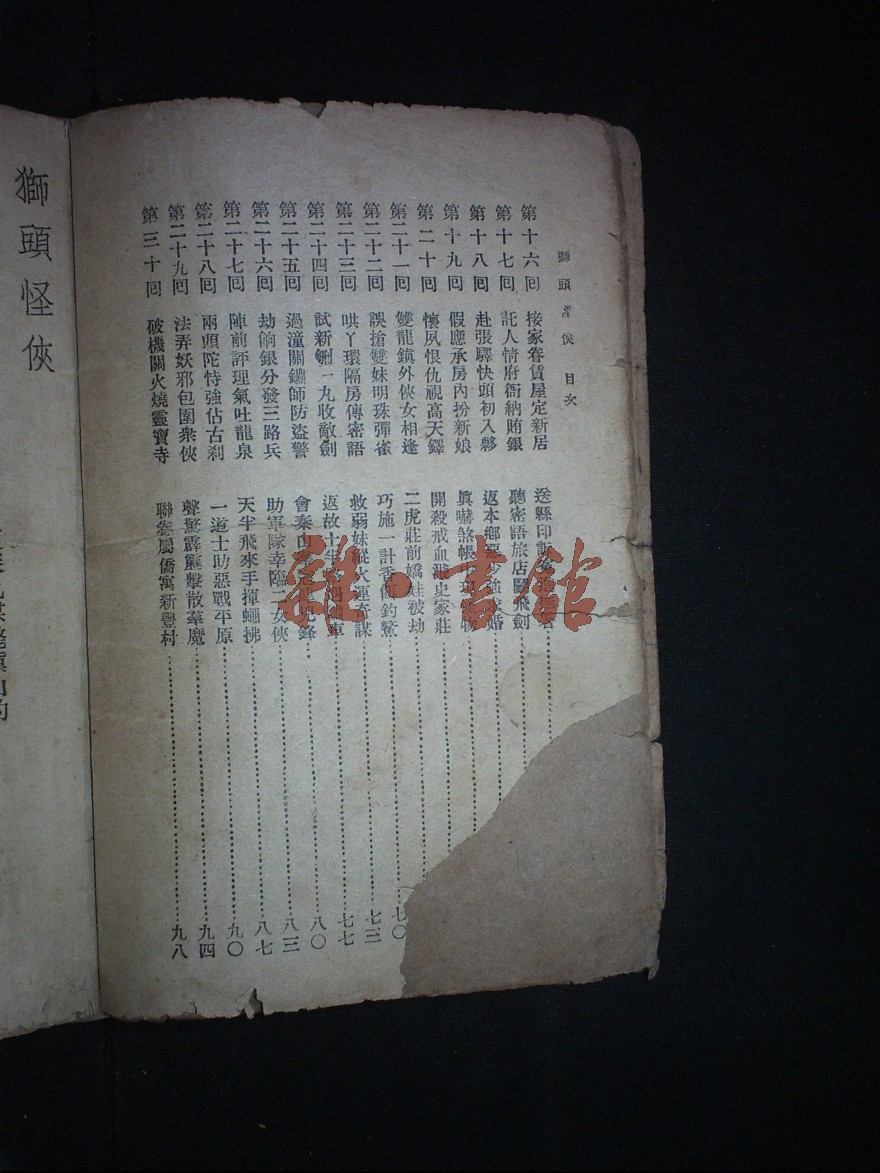 獅頭怪俠 目次
第十六回 接家眷賃屋定新居 送縣印
第十七回 託人情府衙納賄銀 聽密語旅店鬭飛劍
第十八回 赴張驛快頭初入夥 返本鄉惡少強求婚
第十九回 假應承房內扮新娘 眞嚇煞帳物
第二十回 懷夙恨仇視高天鐸 開殺戒血濺史家莊
第二十一回 雙龍鎭外俠女相逢 二虎莊前嬌娃被劫
第二十二回 誤搶雙妹明珠彈雀 巧施一計香餌釣鰲
第二十三回 哄丫環隔房傳密語 救弱妹縱火運奇謀
第二十四回 試新硎一丸收敵劍 返故士半
第二十五回 過潼關鏢師防盜警 會秦山鋒
第二十六回 劫餉銀分發三路兵 助軍隊幸臨二女俠
第二十七回 陣前評理氣吐龍泉 天半飛來手揮蠅拂
第二十八回 兩頭陀恃強佔古刹 一道士助惡戰平原
第二十九回 法弄妖邪包圍衆俠 聲驚霹靂擊散羣魔
第三十回 破機關火燒靈寶寺 聯眷屬僑寓新豐村
七〇
七三
七七
八〇
八三
八七
九〇
九四
九八
獅頭怪俠
雜·書館